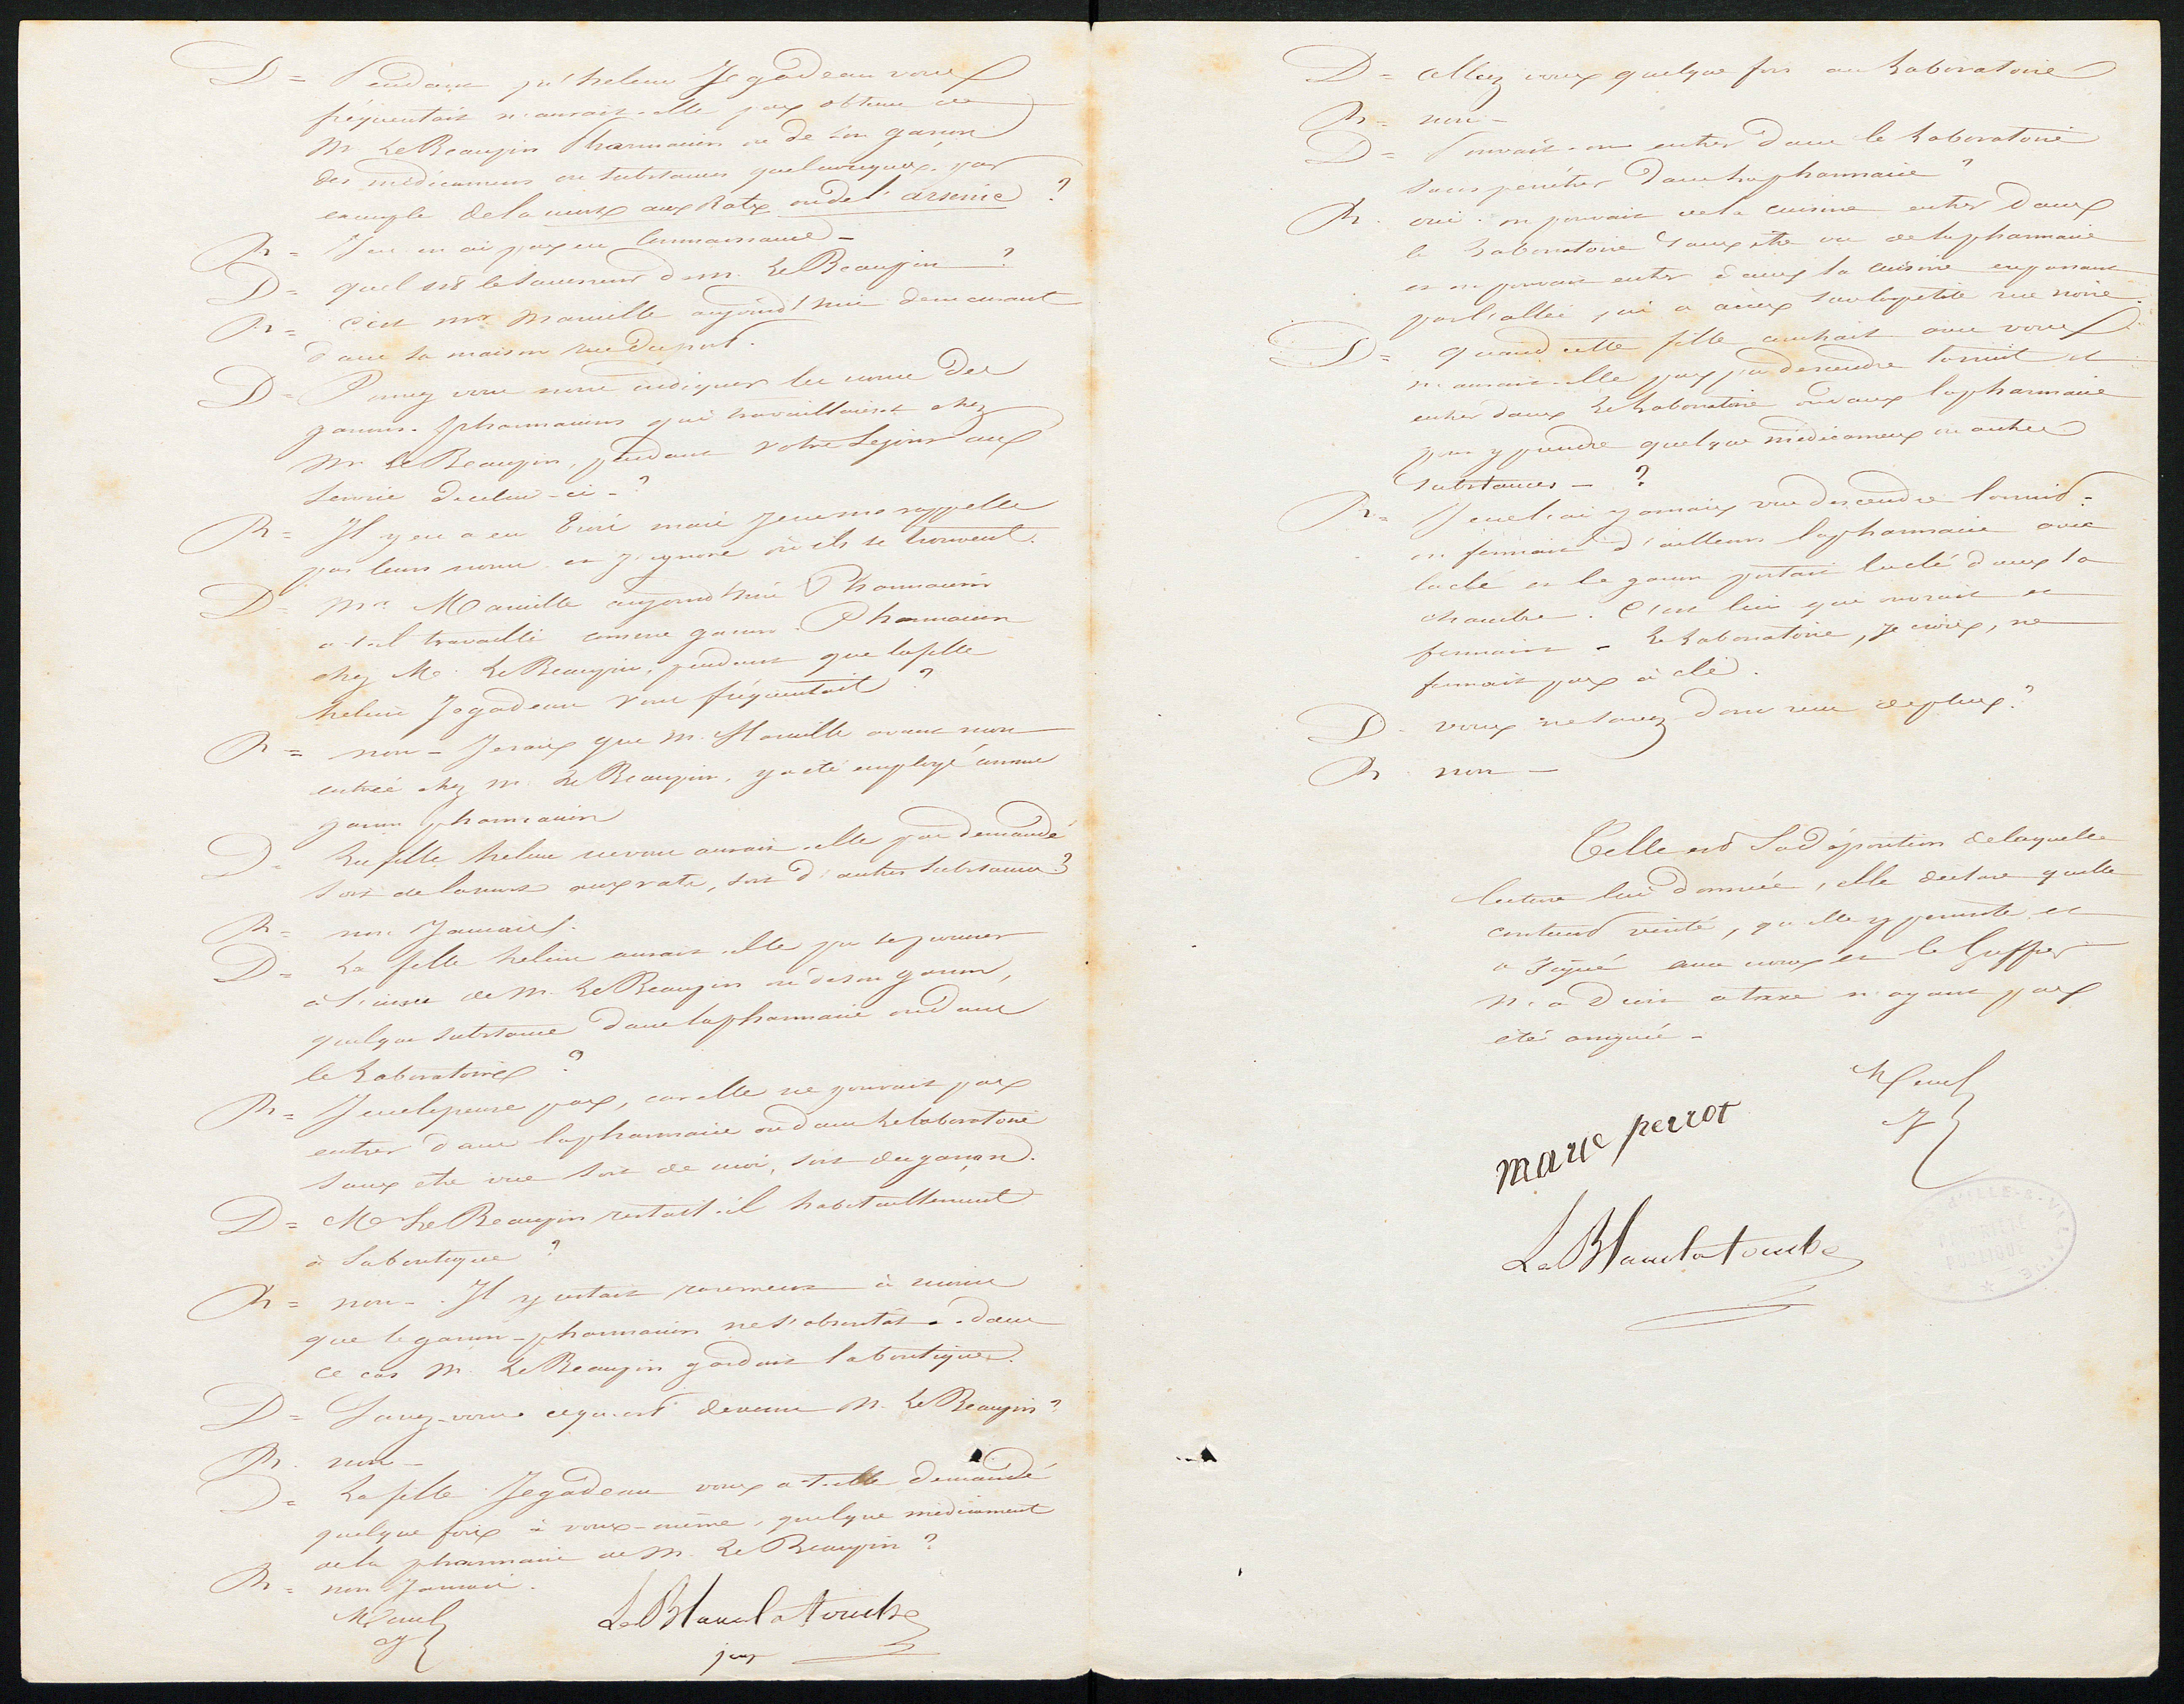 D = Pendant qu'helene Jegadeau vous
fréquentait n'aurait-elle pas obtenu de
Mr LeBeaupin Pharmacien ou de son garçon
des médicamens ou substances quelconques, par
exemple de la mort aux Rats ou de l'arsenic ?
R = Je n'en ai pas eu Connaissance -
D = quel est le successeur de m. LeBeaupin ?
R = C'est mr Maville aujourd'hui demeurant
dans sa maison rue du port.
D = Pouvez vous nous indiquer les noms des
garçons-pharmaciens qui travaillaient chez
Mr LeBeaupin, pendant votre séjour au
service de celui-ci - ?
R = Il y en a eu trois mais je ne me rappelle
pas leurs noms et j'ignore où ils se trouvent.
D = Mr Maville aujourd'hui Pharmacien
a-t-il travaillé comme garçon-Pharmacien
chez Mr LeBeaupin, pendant que la fille
helene Jegadeau vous fréquentait ?
R = non - Je sais que M. Maville avant mon
entrée chez m. LeBeaupin, y a été employé comme
garçon pharmacien
D = La fille helene ne vous aurait-elle pas demandé
soit de la mort aux rats, soit d'autres substances ?
R = non Jamais.
D = La fille helene aurait-elle pu se procurer
à l'insu de M. LeBeaupin ou de son garçon,
quelque substance dans la pharmacie ou dans
le Laboratoire ?
R = Je ne le pense pas, car elle ne pouvait pas
entrer dans la pharmacie ou dans le laboratoire
sans etre vue soit de moi, soit du garçon.
D = Mr LeBeaupin restait-il habituellement
à sa boutique ?
R = non - Il y restait rarement à moins
que le garçon-pharmacien ne s'absentât - dans
ce cas M. LeBeaupin gardait la boutique.
D = Savez-vous ce qu'est devenu M. LeBeaupin ?
R. non -
D = La fille Jegadeau vous a-t-elle demandé
quelque fois à vous-même, quelque médicament
de la pharmacie de M. LeBeaupin ?
R = non Jamais.
LeBlanclatouche
D = Alliez vous quelque fois au Laboratoire
R = non -
D = Pouvait-on entrer dans le Laboratoire
sans pénétrer dans la pharmacie ?
R. oui - on pouvait de la cuisine entrer dans
le Laboratoire sans etre vu de la pharmacie
et on pouvait entrer dans la cuisine en passant
par l'allée qui a accès sur la petite rue noire.
D = quand cette fille couchait avec vous
n'aurait-elle pas pu descendre la nuit et
entrer dans le Laboratoire ou dans la pharmacie
pour y prendre quelque médicamens ou autres
substances - ?
R = Je ne l'ai jamais vue descendre la nuit -
on fermait d'ailleurs la pharmacie avec
la clé et le garçon portait la clé dans sa
chambre. C'est lui qui ouvrait et
fermait - Le Laboratoire, je crois, ne
fermait pas à clé.
D. vous ne savez donc rien de plus ?
R non -
Telle est sa déposition de laquelle
lecture lui donnée, elle déclare qu'elle
contient vérité, qu'elle y persiste et
a signé avec nous et le Greffier
n'a droit a taxe n'ayant pas
été assignée -
marie perrot
LeBlanclatouche
D'ILLE-&-VILAINE
PROPRIÉTÉ
PUBLIQUE